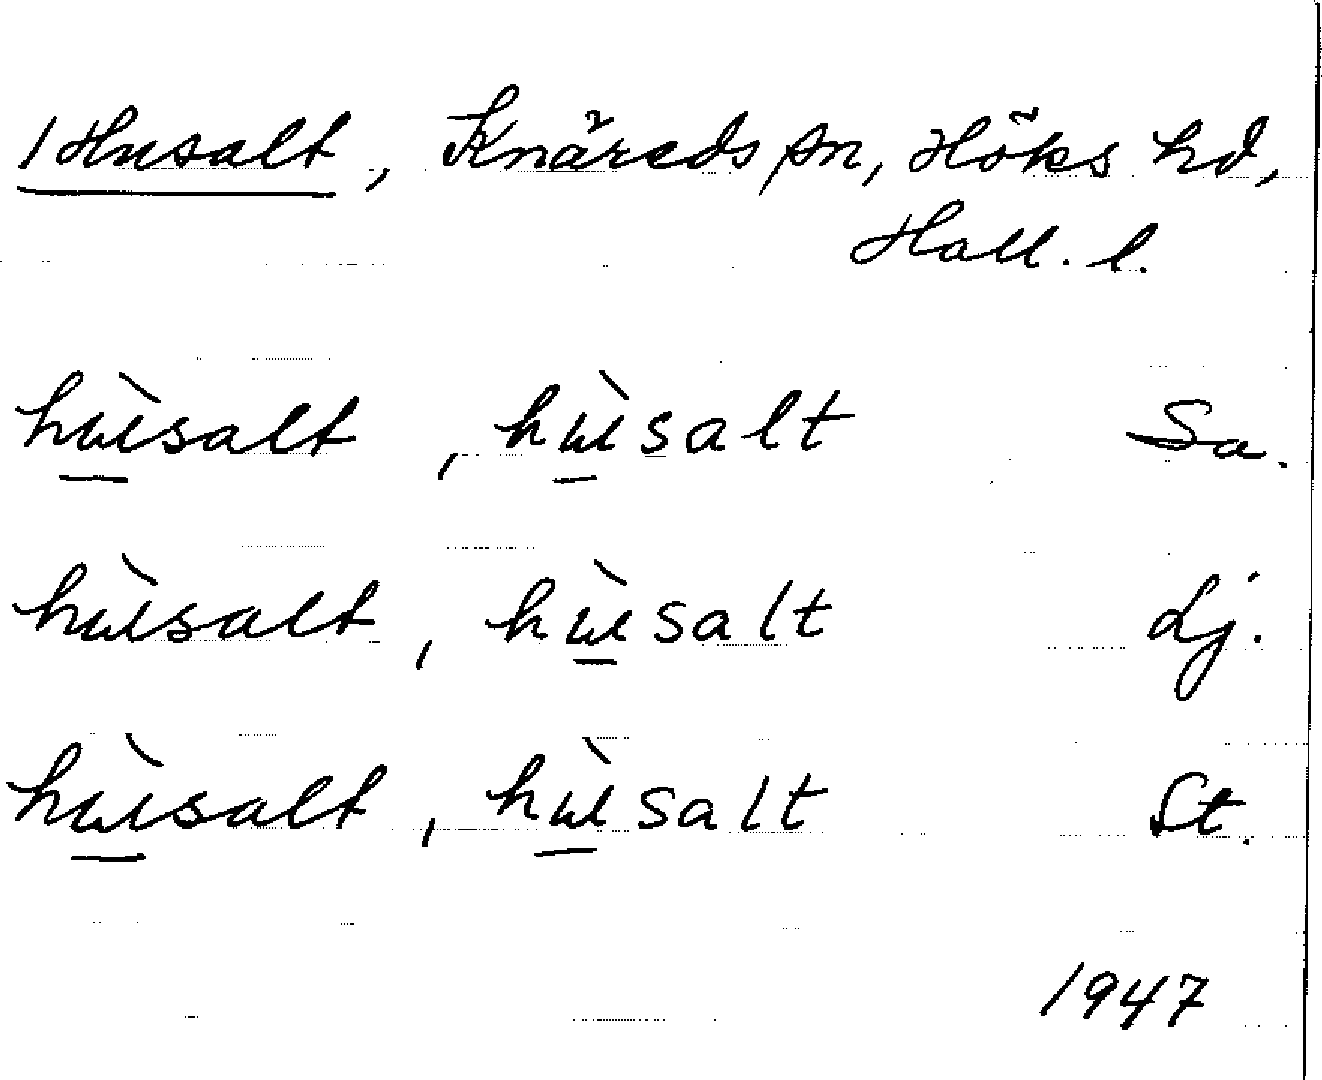 1 Husalt, Knäreds sn, Höks hd,
Hall. l.
hɯ̀salt, hɯ̀salt Sa.
hɯ̀salt, hɯ̀salt Lj.
hɯ̀salt, hɯ̀salt St.
1947